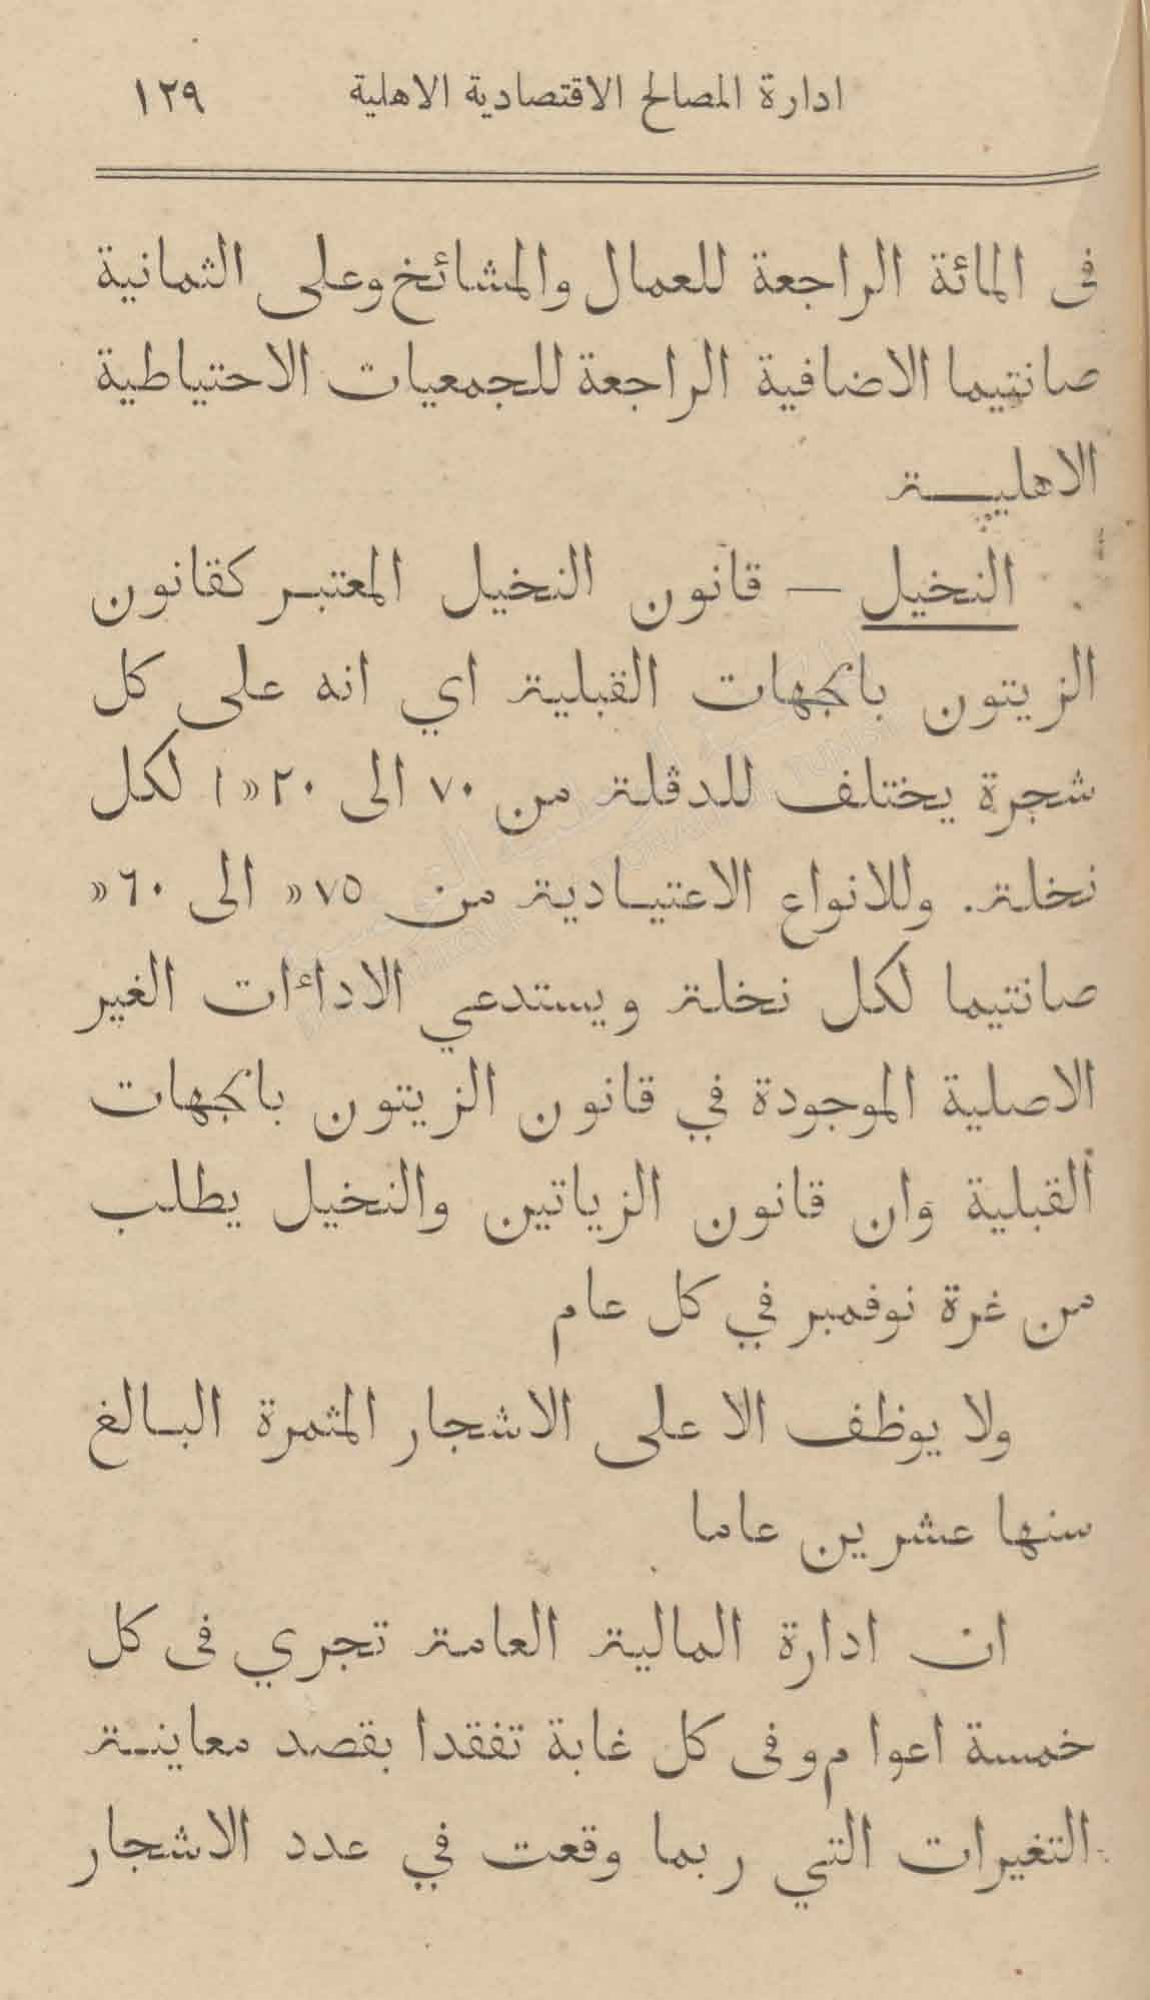 ادارة المصالح الاقتصادية الاهلية ١٢٩
فى المائة الراجعة للعمال والمشائخ وعلى الثمانية
صانتيما الاضافية الراجعة للجمعيات الاحتياطية
الاهليـــة
النخيل — قانون النخيل المعتبر كقانون
الزيتون بالجهات القبلية اي انه على كل
شجرة يختلف للدڤلة من ٧٠ الى ٢٠»١ لكل
نخلة. وللانواع الاعتيادية من ٧٥» الى ٦٠»
صانتيما لكل نخلة ويستدعي الاداءات الغير
الاصلية الموجودة في قانون الزيتون بالجهات
القبلية وان قانون الزياتين والنخيل يطلب
من غرة نوفمبر في كل عام
ولا يوظف الا على الاشجار المثمرة البالغ
سنها عشرين عاما
ان ادارة المالية العامة تجري فى كل
خمسة اعوام وفى كل غابة تفقدا بقصد معاينة
التغيرات التي ربما وقعت في عدد الاشجار